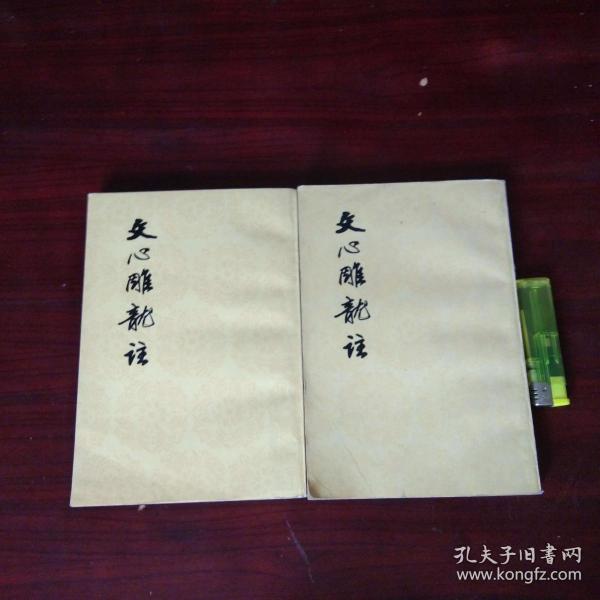 文心雕龍註
文心雕龍註
孔夫子旧書网
www.kongfz.com